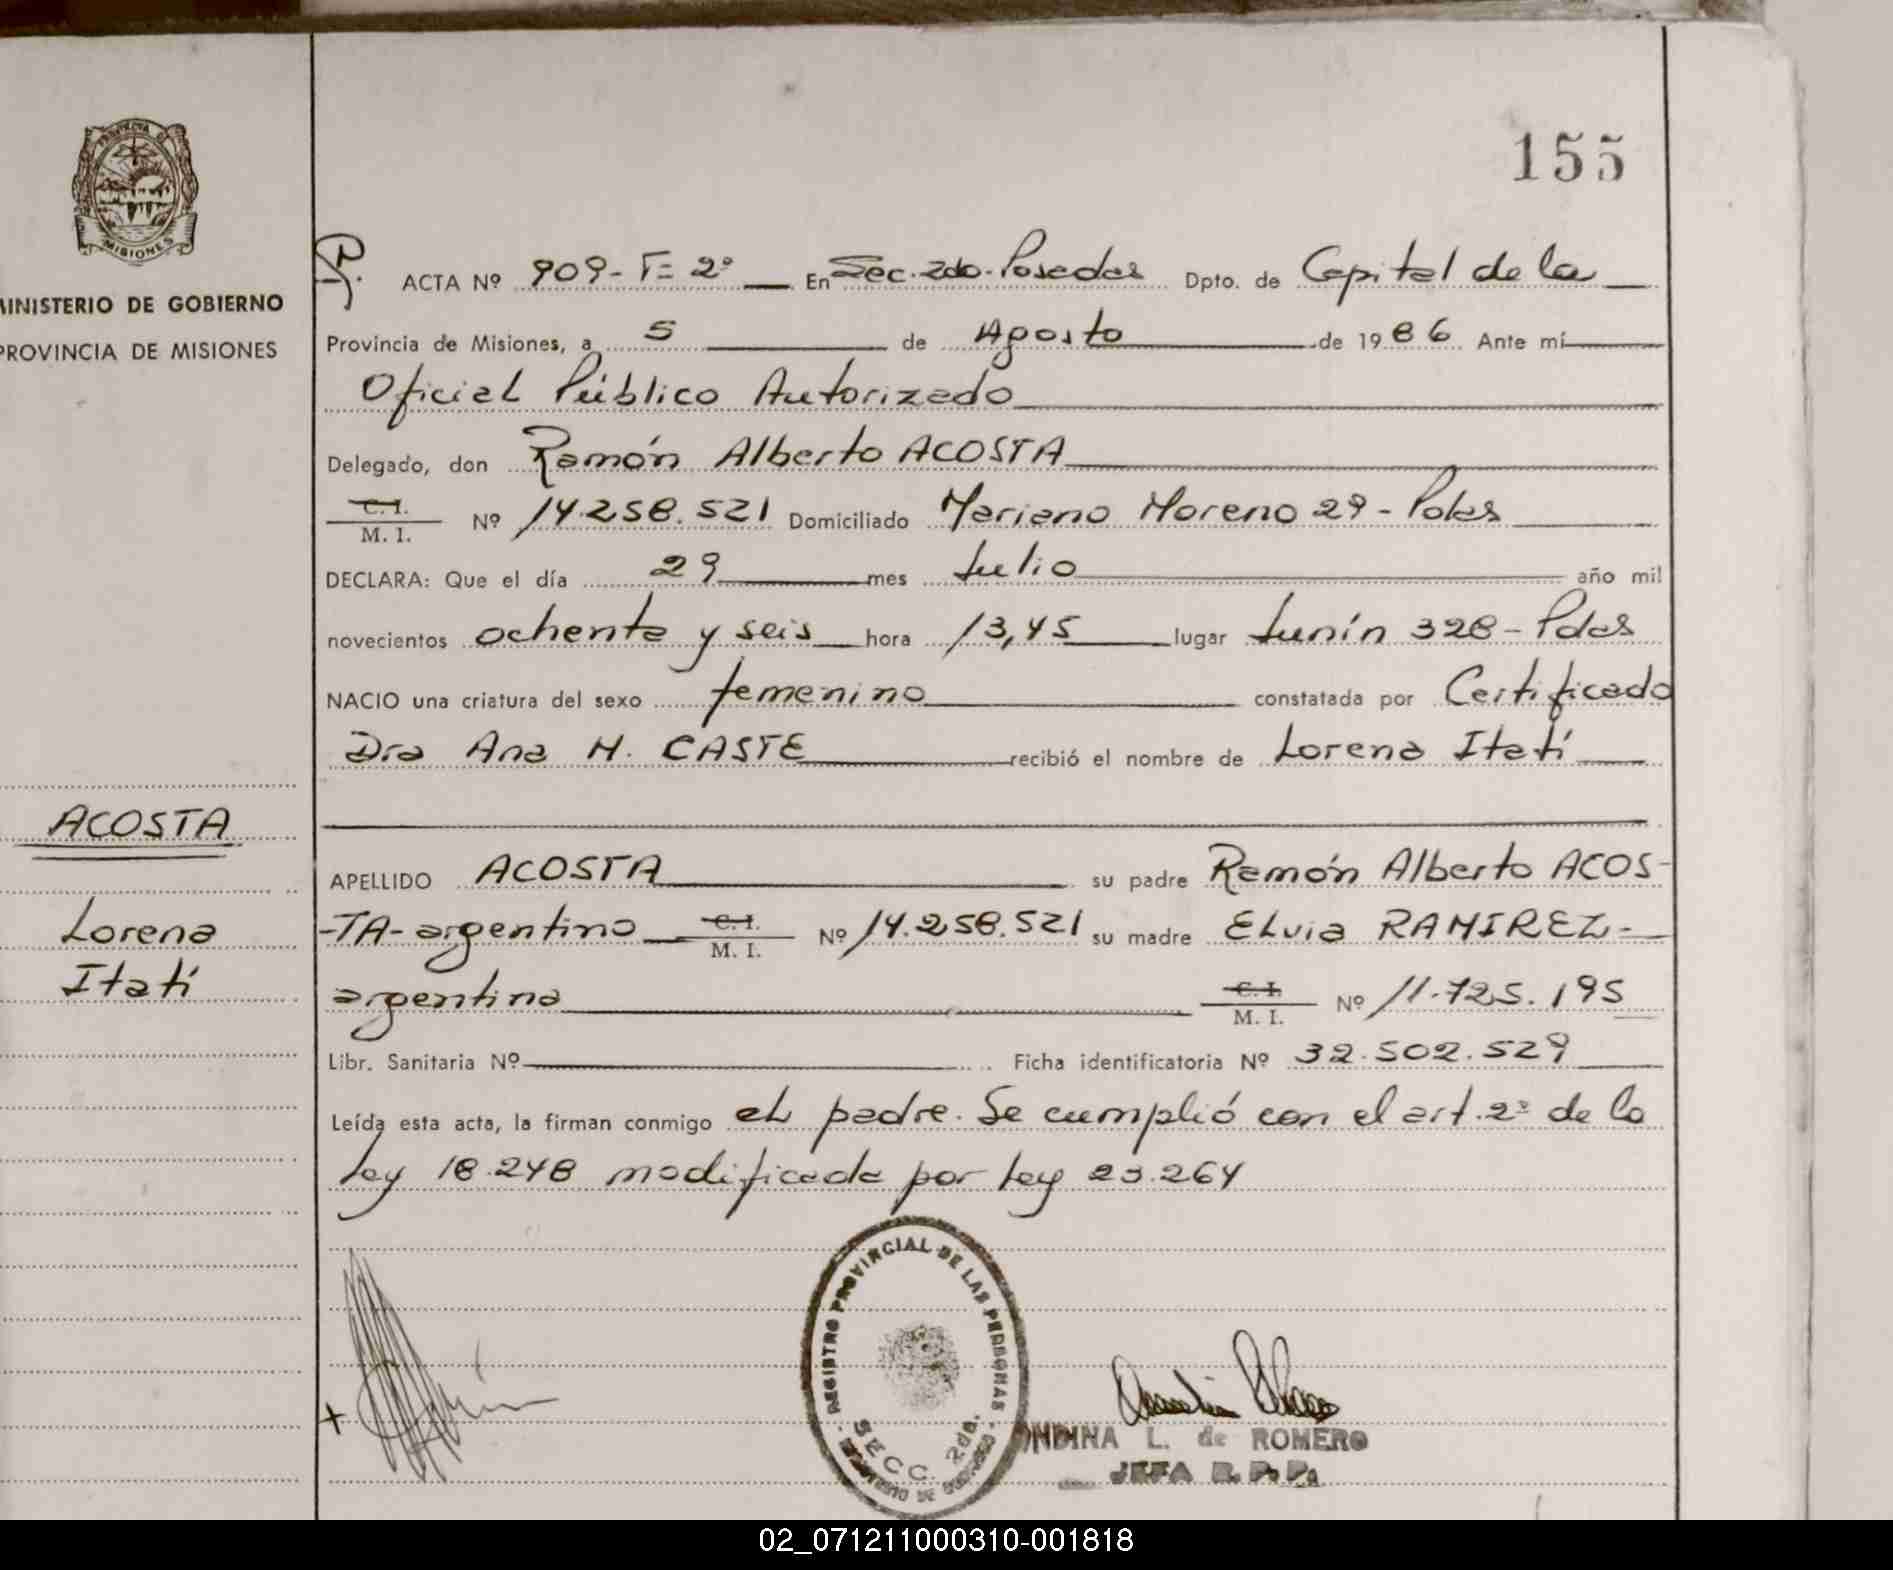 155
PROVINCIA DE
MISIONES
MINISTERIO DE GOBIERNO
PROVINCIA DE MISIONES
ACOSTA
Lorena
Itatí
ACTA Nº 909- T= 2º En Sec. 2da. Posadas Dpto. de Capital de la
Provincia de Misiones, a 5 de Agosto de 1986 Ante mí
Oficial Público Autorizado
Delegado, don Ramón Alberto ACOSTA
C. I.
M. I. Nº 14.258.521 Domiciliado Mariano Moreno 29 - Pdas
DECLARA: Que el día 29 mes Julio año mil
novecientos ochenta y seis hora 13,45 lugar Junín 328 - Pdas
NACIO una criatura del sexo femenino constatada por Certificado
Dra Ana M. CASTE recibió el nombre de Lorena Itatí
APELLIDO ACOSTA su padre Ramón Alberto ACOS-
-TA- argentino C. I. M. I. Nº 14.258.521 su madre Elvia RAMIREZ -
argentina C. I. M. I. Nº 11.725.195
Libr. Sanitaria Nº Ficha identificatoria Nº 32.502.529
Leída esta acta, la firman conmigo el padre. Se cumplió con el art. 2º de la
ley 18.248 modificada por ley 23.264
REGISTRO PROVINCIAL DE LAS PERSONAS
SECC. 2da.
ONDINA L. de ROMERO
JEFA R. P. P.
02_071211000310-001818